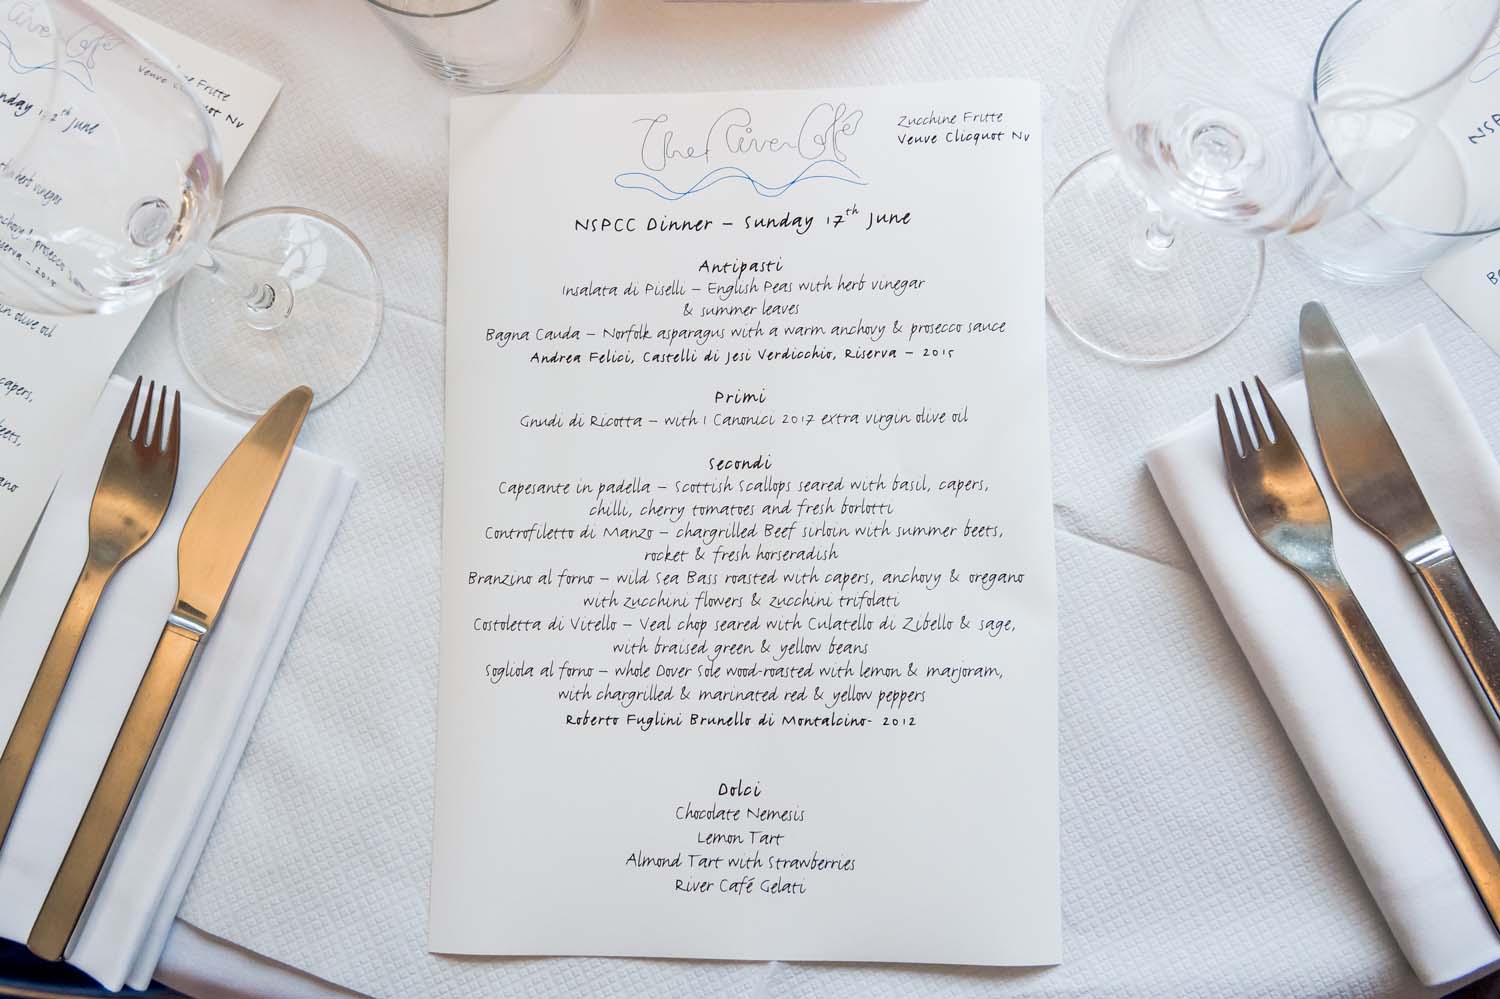 The River Café
Zucchine Fritte
Veuve Clicquot NV
NSPCC Dinner – Sunday 17th June
Antipasti
Insalata di Piselli – English Peas with herb vinegar
& summer leaves
Bagna Cauda – Norfolk asparagus with a warm anchovy & prosecco sauce
Andrea Felici, Castelli di Jesi Verdicchio, Riserva – 2015
Primi
Gnudi di Ricotta – with I Canonici 2017 extra virgin olive oil
Secondi
Capesante in padella – Scottish Scallops seared with basil, capers,
chilli, cherry tomatoes and fresh borlotti
Controfiletto di Manzo – chargrilled Beef sirloin with summer beets,
rocket & fresh horseradish
Branzino al forno – wild Sea Bass roasted with capers, anchovy & oregano
with zucchini flowers & zucchini trifolati
Costoletta di Vitello – Veal chop seared with Culatello di Zibello & sage,
with braised green & yellow beans
Sogliola al forno – whole Dover Sole wood-roasted with lemon & marjoram,
with chargrilled & marinated red & yellow peppers
Roberto Fuglini Brunello di Montalcino- 2012
Dolci
Chocolate Nemesis
Lemon Tart
Almond Tart with Strawberries
River Café Gelati
River Café
Fritte
Veuve Clicquot NV
June
herb vinegar
prosecco
2015
olive oil
capers,
beets,
NSPC